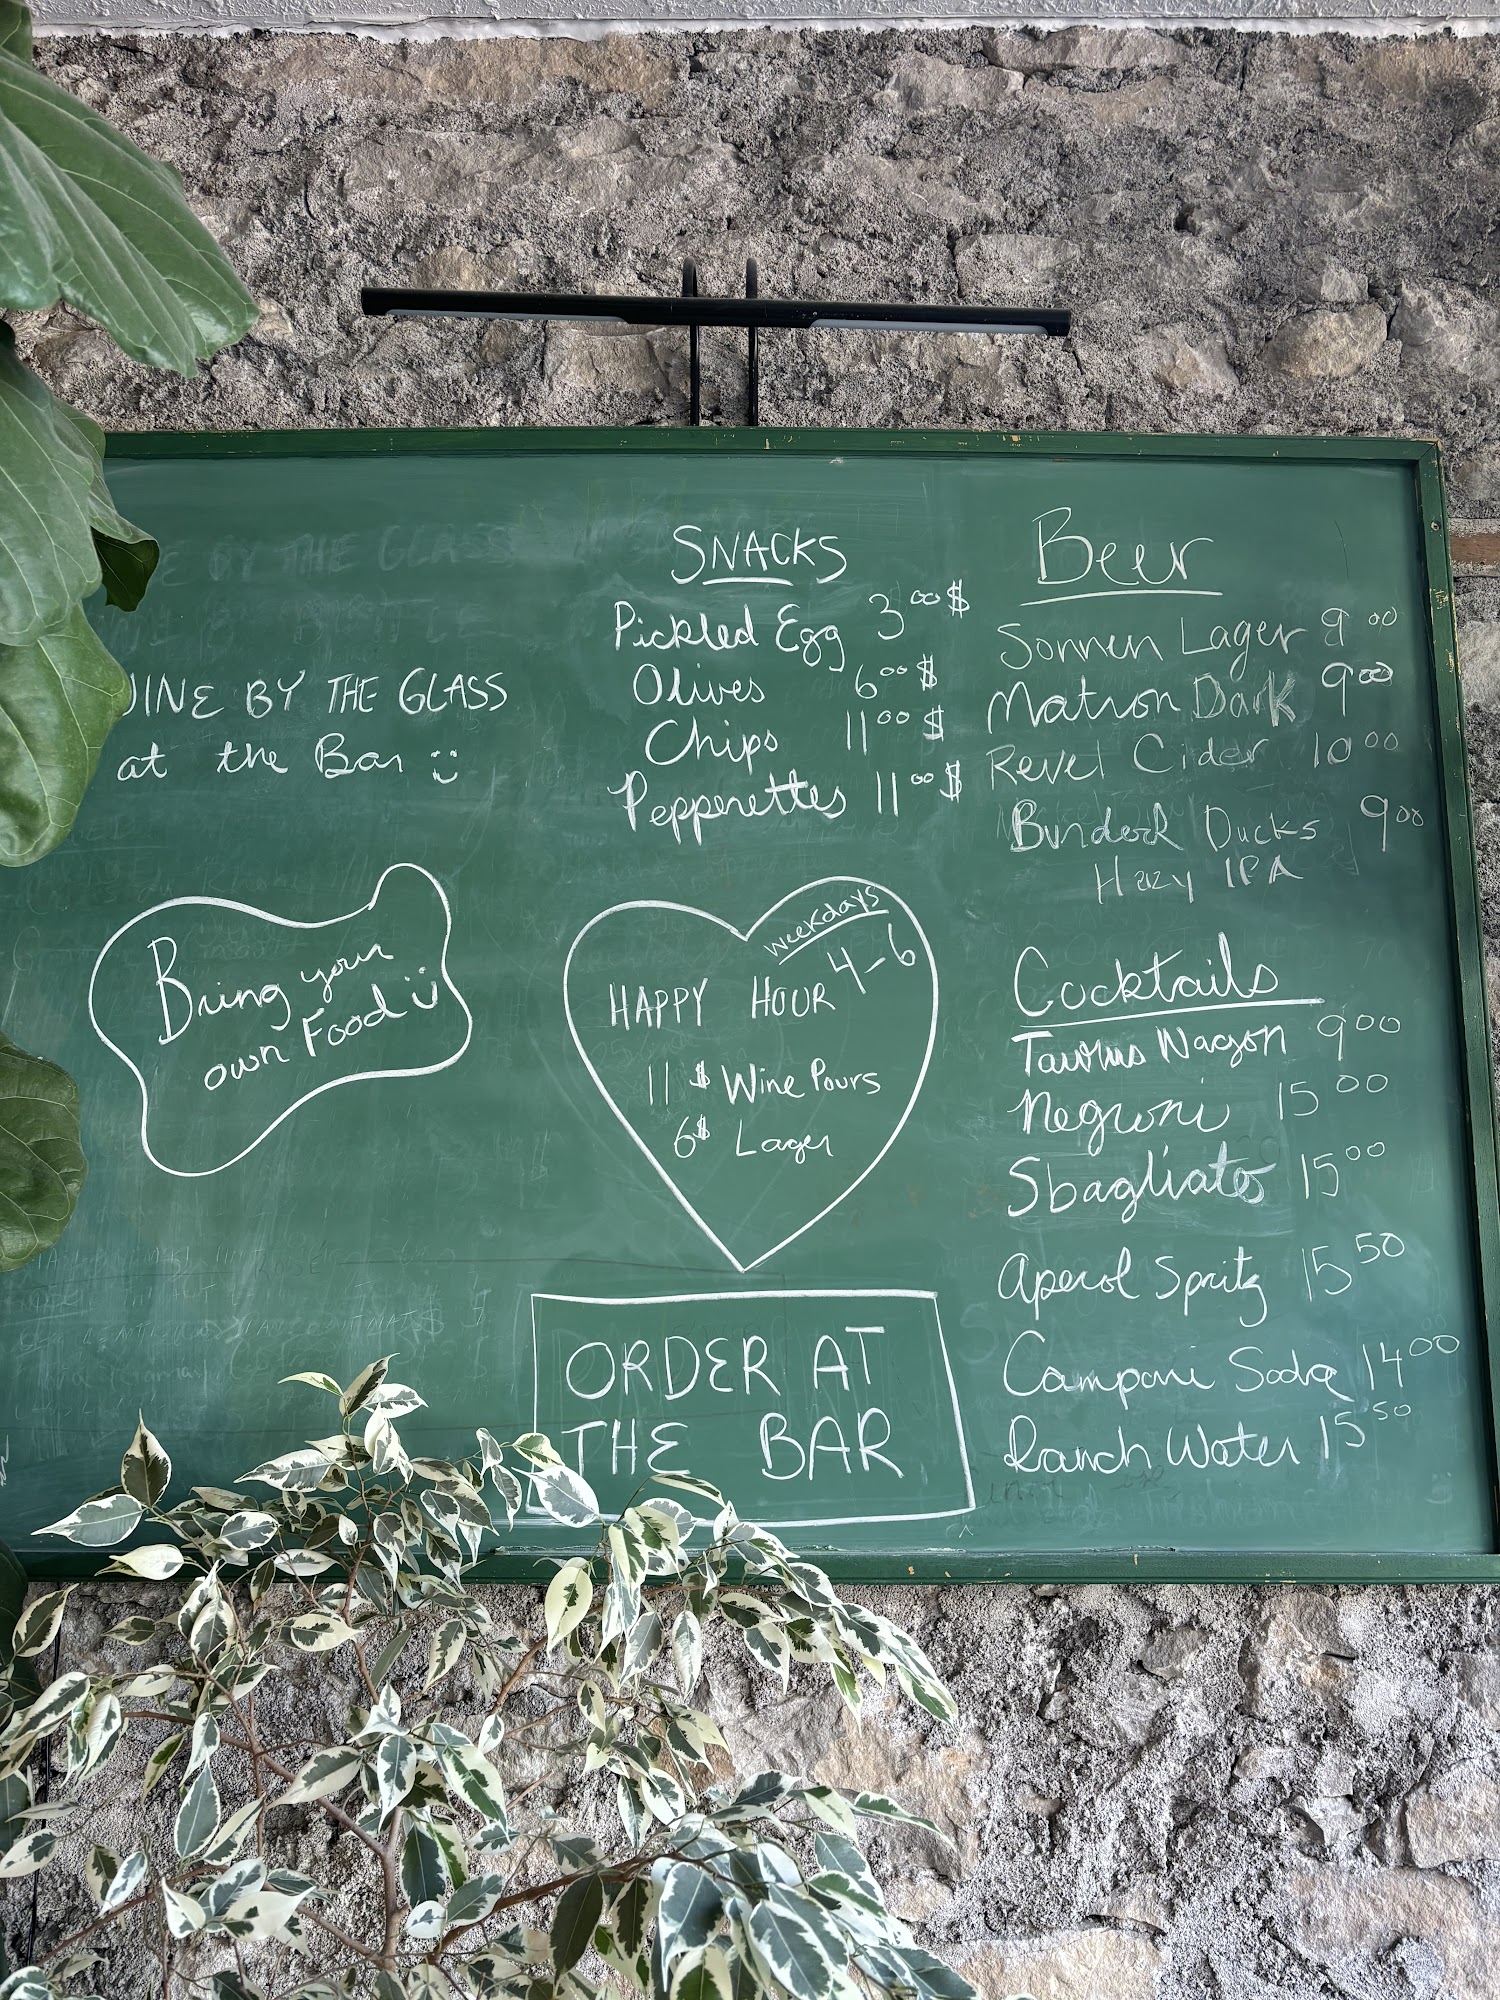 WINE BY THE GLASS
at the Bar :)
Bring your
own Food :)
SNACKS
Pickled Egg 3.00$
Olives 6.00$
Chips 11.00$
Pepperettes 11.00$
weekdays
HAPPY HOUR 4-6
11$ Wine Pours
6$ Lager
ORDER AT
THE BAR
Beer
Sonnen Lager 9.00
Matron Dark 9.00
Revel Cider 10.00
Burdock Ducks 9.00
Hazy IPA
Cocktails
Taurus Wagon 9.00
Negroni 15.00
Sbagliato 15.00
Aperol Spritz 15.50
Campari Soda 14.00
Ranch Water 15.50